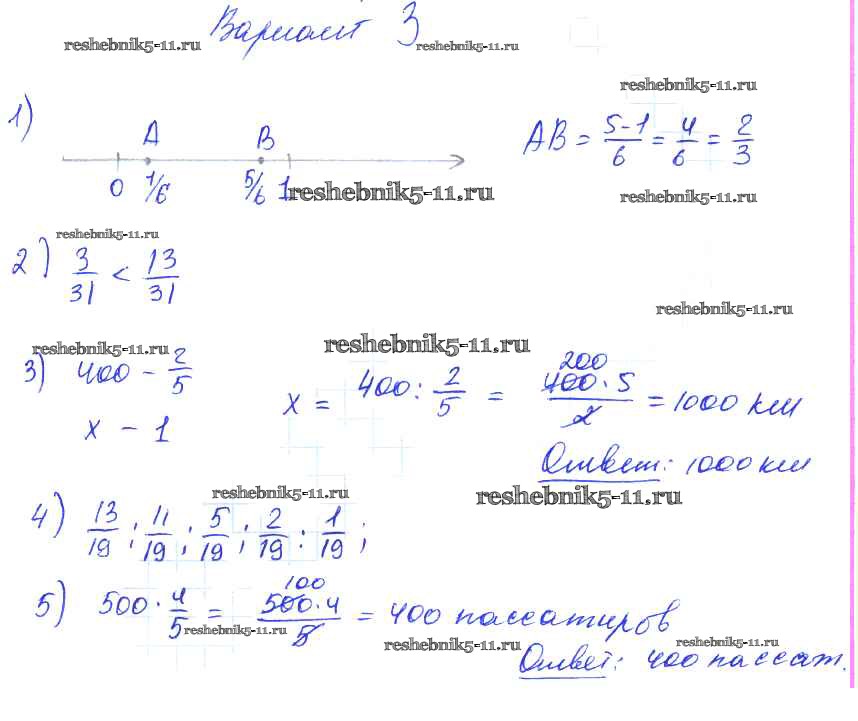 Вариант 3
reshebnik5-11.ru reshebnik5-11.ru
reshebnik5-11.ru
1)
A B
0 1/6 5/6 1
AB = 5-1/6 = 4/6 = 2/3
reshebnik5-11.ru reshebnik5-11.ru
reshebnik5-11.ru
2) 3/31 < 13/31
reshebnik5-11.ru
reshebnik5-11.ru reshebnik5-11.ru
3) 400 - 2/5
x - 1
x = 400 : 2/5 = 200 400·5/2 = 1000 км
Ответ: 1000 км
reshebnik5-11.ru reshebnik5-11.ru
4) 13/19 ; 11/19 ; 5/19 ; 2/19 ; 1/19 ;
5) 500 · 4/5 = 100 500·4/5 = 400 пассатиров
reshebnik5-11.ru reshebnik5-11.ru reshebnik5-11.ru
Ответ: 400 пассат.